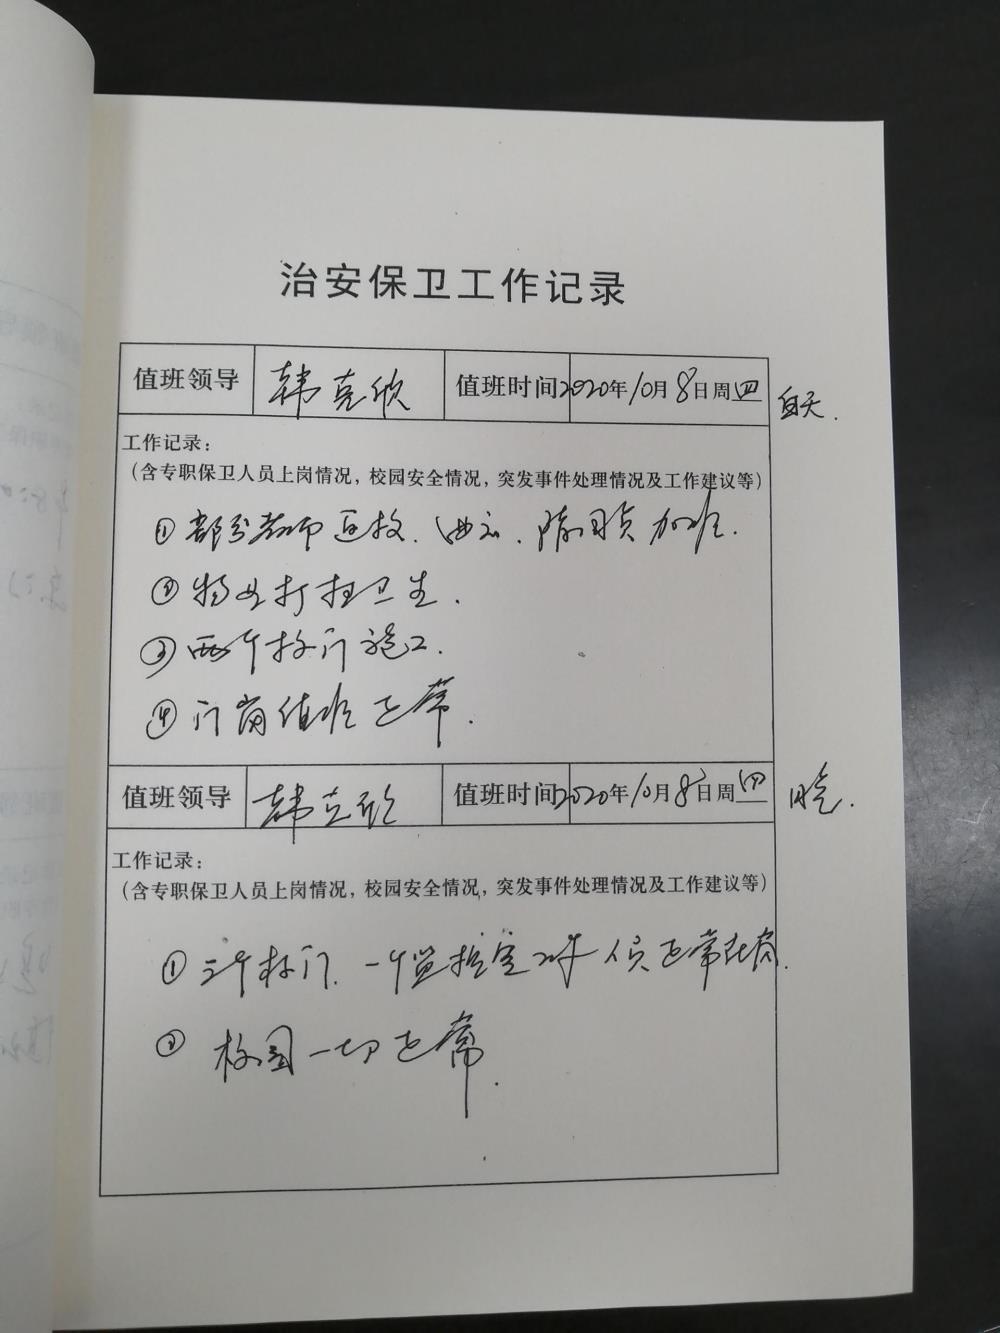 治安保卫工作记录
值班领导 韩克欣 值班时间 2020年10月8日周四 白天.
工作记录:
(含专职保卫人员上岗情况, 校园安全情况, 突发事件处理情况及工作建议等)
① 部分教师返校. 加班.
② 物业打扫卫生.
③ 两个校门施工.
④ 门岗值班正常.
值班领导 韩克欣 值班时间 2020年10月8日周四 晚.
工作记录:
(含专职保卫人员上岗情况, 校园安全情况, 突发事件处理情况及工作建议等)
① 三个校门. 一个监控室 人员正常在岗.
② 校园一切正常.